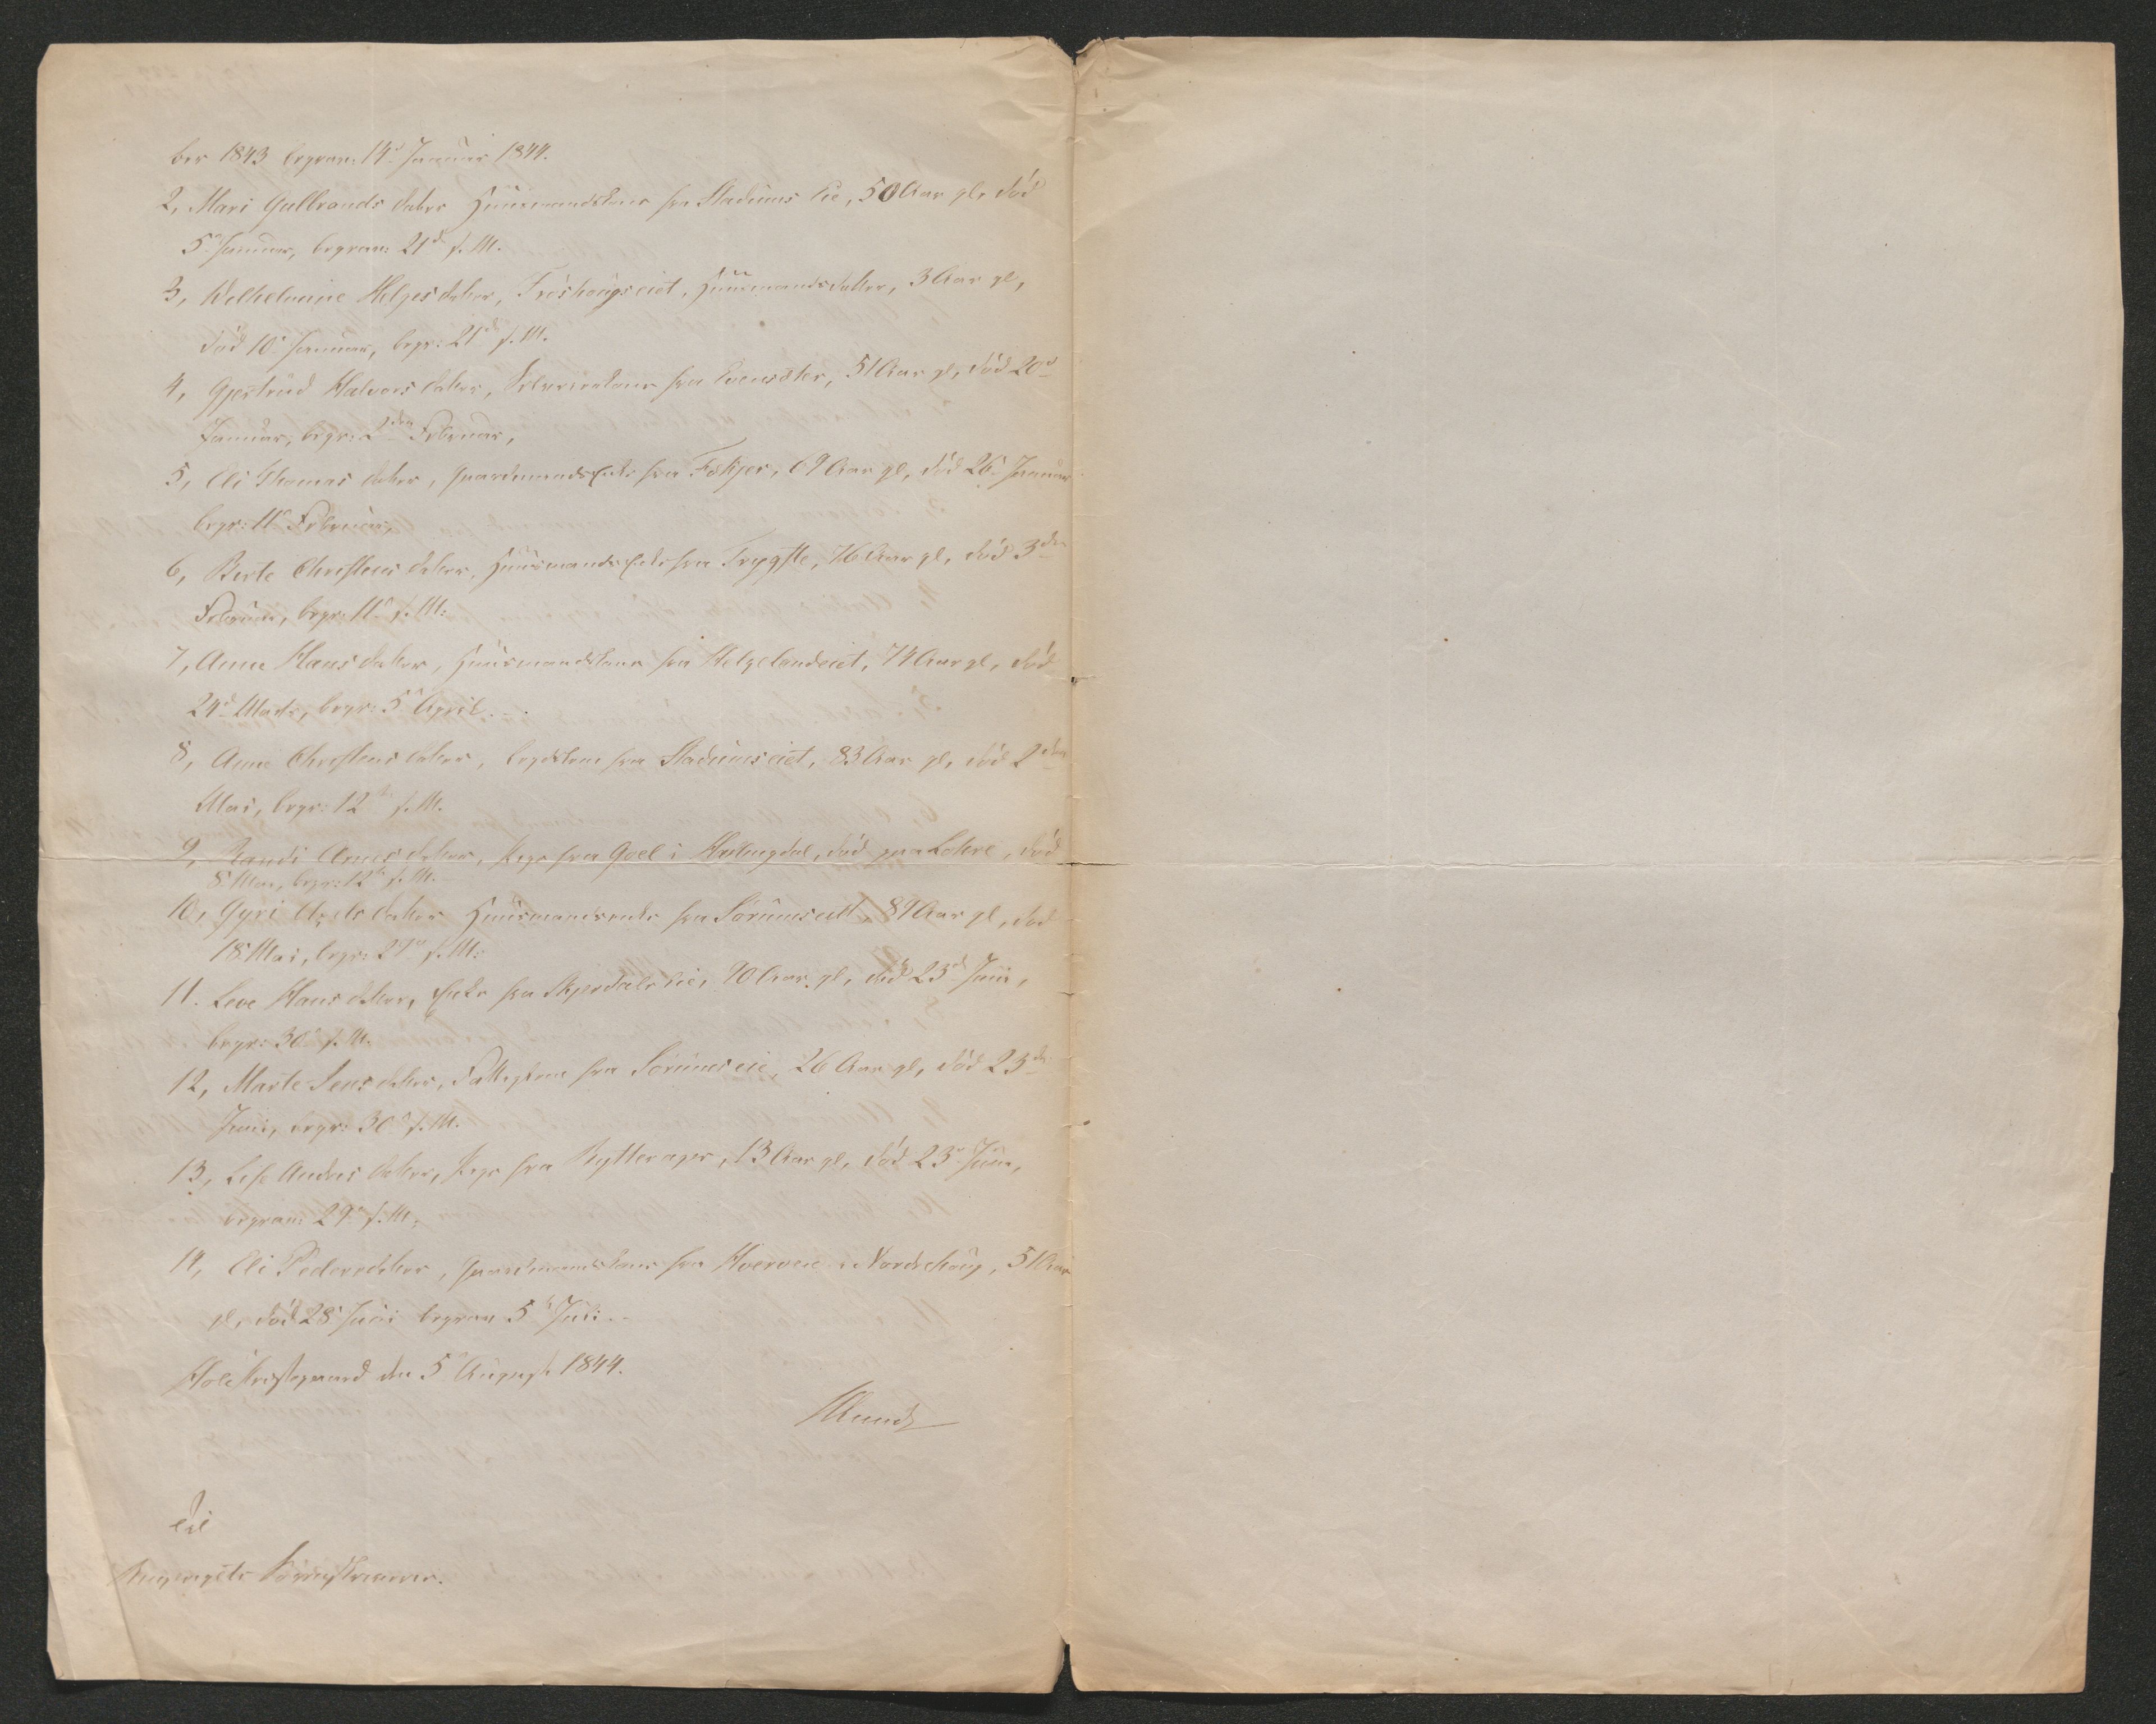 ber 1843 begrav: 14d Januar 1844.
2, Mari Gulbrands datter Huusmandskone fra Stadums Eie, 50 Aar gl, død
5' Januar, begrav: 21de s. M.
3, Wilhelmine Helges datter, Frøshougseiet, Huusmandsdatter, 3 Aar gl,
død 10' Januar, begr: 21de s. M.
4, Gjertrud Halvors datter, kone fra 51 Aar gl, død 20d
Januar, begr: 2den Februar,
5, Eli Thomas datter, Gaardmands Enke fra Fekjer, 69 Aar gl, død 26' Januar
begr: 11' Februar,
6, Berte Christens datter, Huusmands Enke fra Trøgsle, 76 Aar gl, død 3de
Februar, begr: 11' s. M:
7, Anne Hans datter, Huusmandskone fra Helgelandeiet, 74 Aar gl, død
24d Marts, begr: 5' April.
8, Anne Christens datter, fra Stadumseiet, 83 Aar gl, død 2den
Mai, begr: 12te s. M.
9, Randi Arnes datter, Pige fra Goel i Hallingdal, død paa Lohre, død
8' Mai, begr: 12te s. M.
10, Gyri datter Huusmandsenke fra Sørumseiet, 89 Aar gl, død
18' Mai, begr: 29' s. M:
11. Live Hans datter, Enke fra Skjerdals Eie, 90 Aar gl, død 23d Juni,
begr: 30' s. M.
12, Marte Jens datter, fra Sørums eie, 26 Aar gl, død 23de
Juni, begr: 30' s. M.
13, Lise Andres datter, Pige fra Rytterager, 13 Aar gl, død 23' Juni,
begrav: 29' s. M:
14, Eli Pedersdatter, Gaardmandskone fra Hverven i Norderhoug, 51 Aar
gl, død 28' Juni begrav 5te Juli.
Hole Præstegaard den 5' August 1844.
Munch
Til
Ringerigets Sorenskriver.